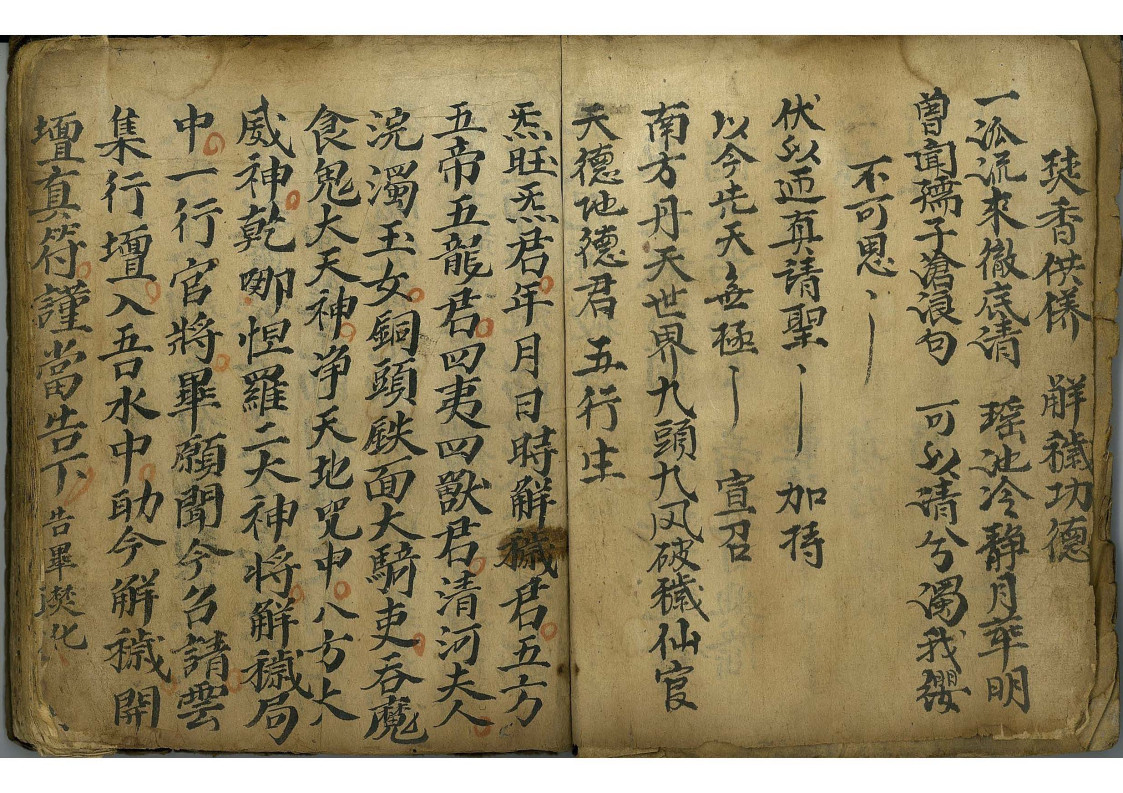 焚香供養　解穢功德
一泒流來徹底清　瑶池冷静月華明
曽聞孺子滄浪句　可以清兮濁我纓
不可思丶丨
伏以迊真請聖丶丨　加持
以今先天无極丶丨　宣召
南方丹天世界九頭九凤破穢仙官
天德地德君五行生
炁旺炁君年月日時解穢君五方
五帝五龍君四夷四獸君清河夫人
浣濁玉女銅頭鉄面大騎吏吞魔
食鬼大天神净天地咒中八方大
威神乾哪怛羅二大神將解穢局
中一行官將畢願聞今召請雲
集行壇入吾水中助今解穢開
壇真符謹當告下 告畢 化